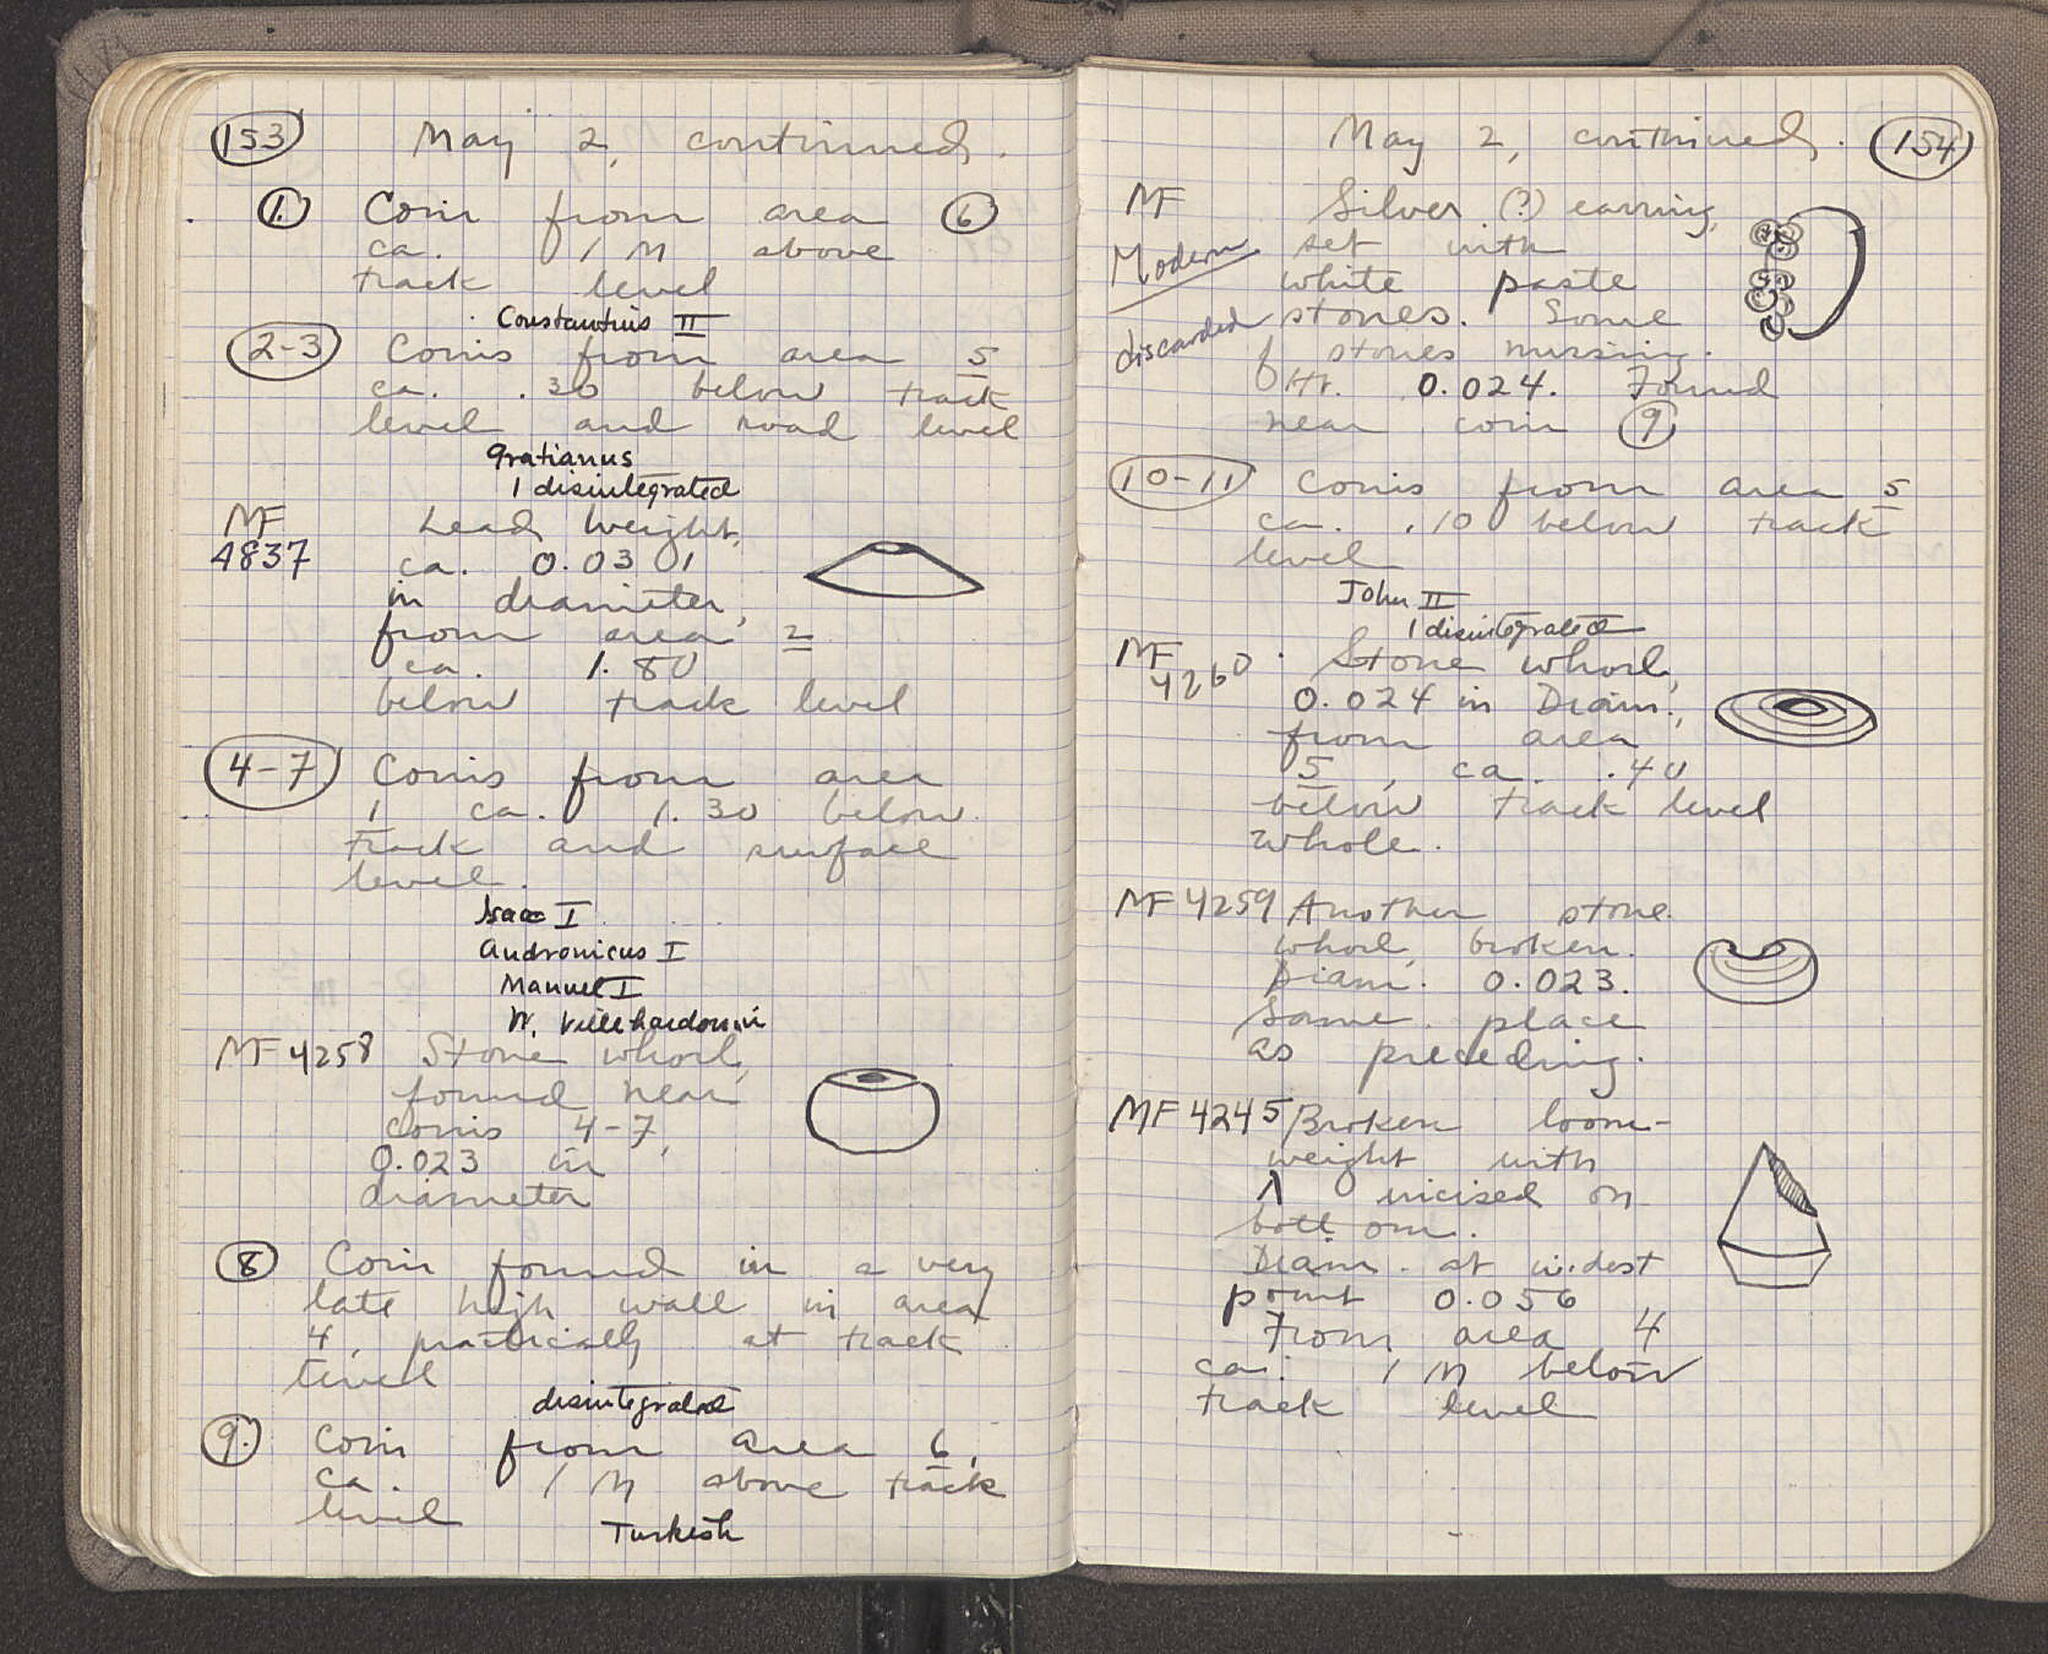 153 May 2, continued.
1. Coin from area 6
ca. 1 M above
track level
Constantius II
2-3 Coins from area 5
ca. .30 below track
level and road level
Gratianus
1 disintegrated
MF Lead weight,
4837 ca. 0.03 01
in diameter,
from area 2
ca. 1.80
below track level
4-7 Coins from area
1 ca. 1.30 below
track and surface
level.
Isaac I
Andronicus I
Manuel I
W. Villehardouin
MF 4258 Stone whorl,
found near
coins 4-7,
0.023 in
diameter
8 Coin found in a very
late high wall in area
4, practically at track
level
disintegrated
9. Coin from area 6,
ca. 1 M above track
level
Turkish
May 2, continued. 154
MF Silver (?) earring,
Modern set with
white paste
discarded stones. Some
of stones missing.
Ht. 0.024. Found
near coin 9
10-11 Coins from area 5
ca. .10 below track
level
John II
1 disintegrated
MF 4260 Stone whorl,
0.024 in Diam.,
from area
5, ca. .40
below track level
whole.
MF 4259 Another stone
whorl, broken.
Diam. 0.023.
Same place
as preceding.
MF 4245 Broken loom-
weight with
λ incised on
bottom.
Diam. at widest
point 0.056
From area 4
ca. 1 M below
track level